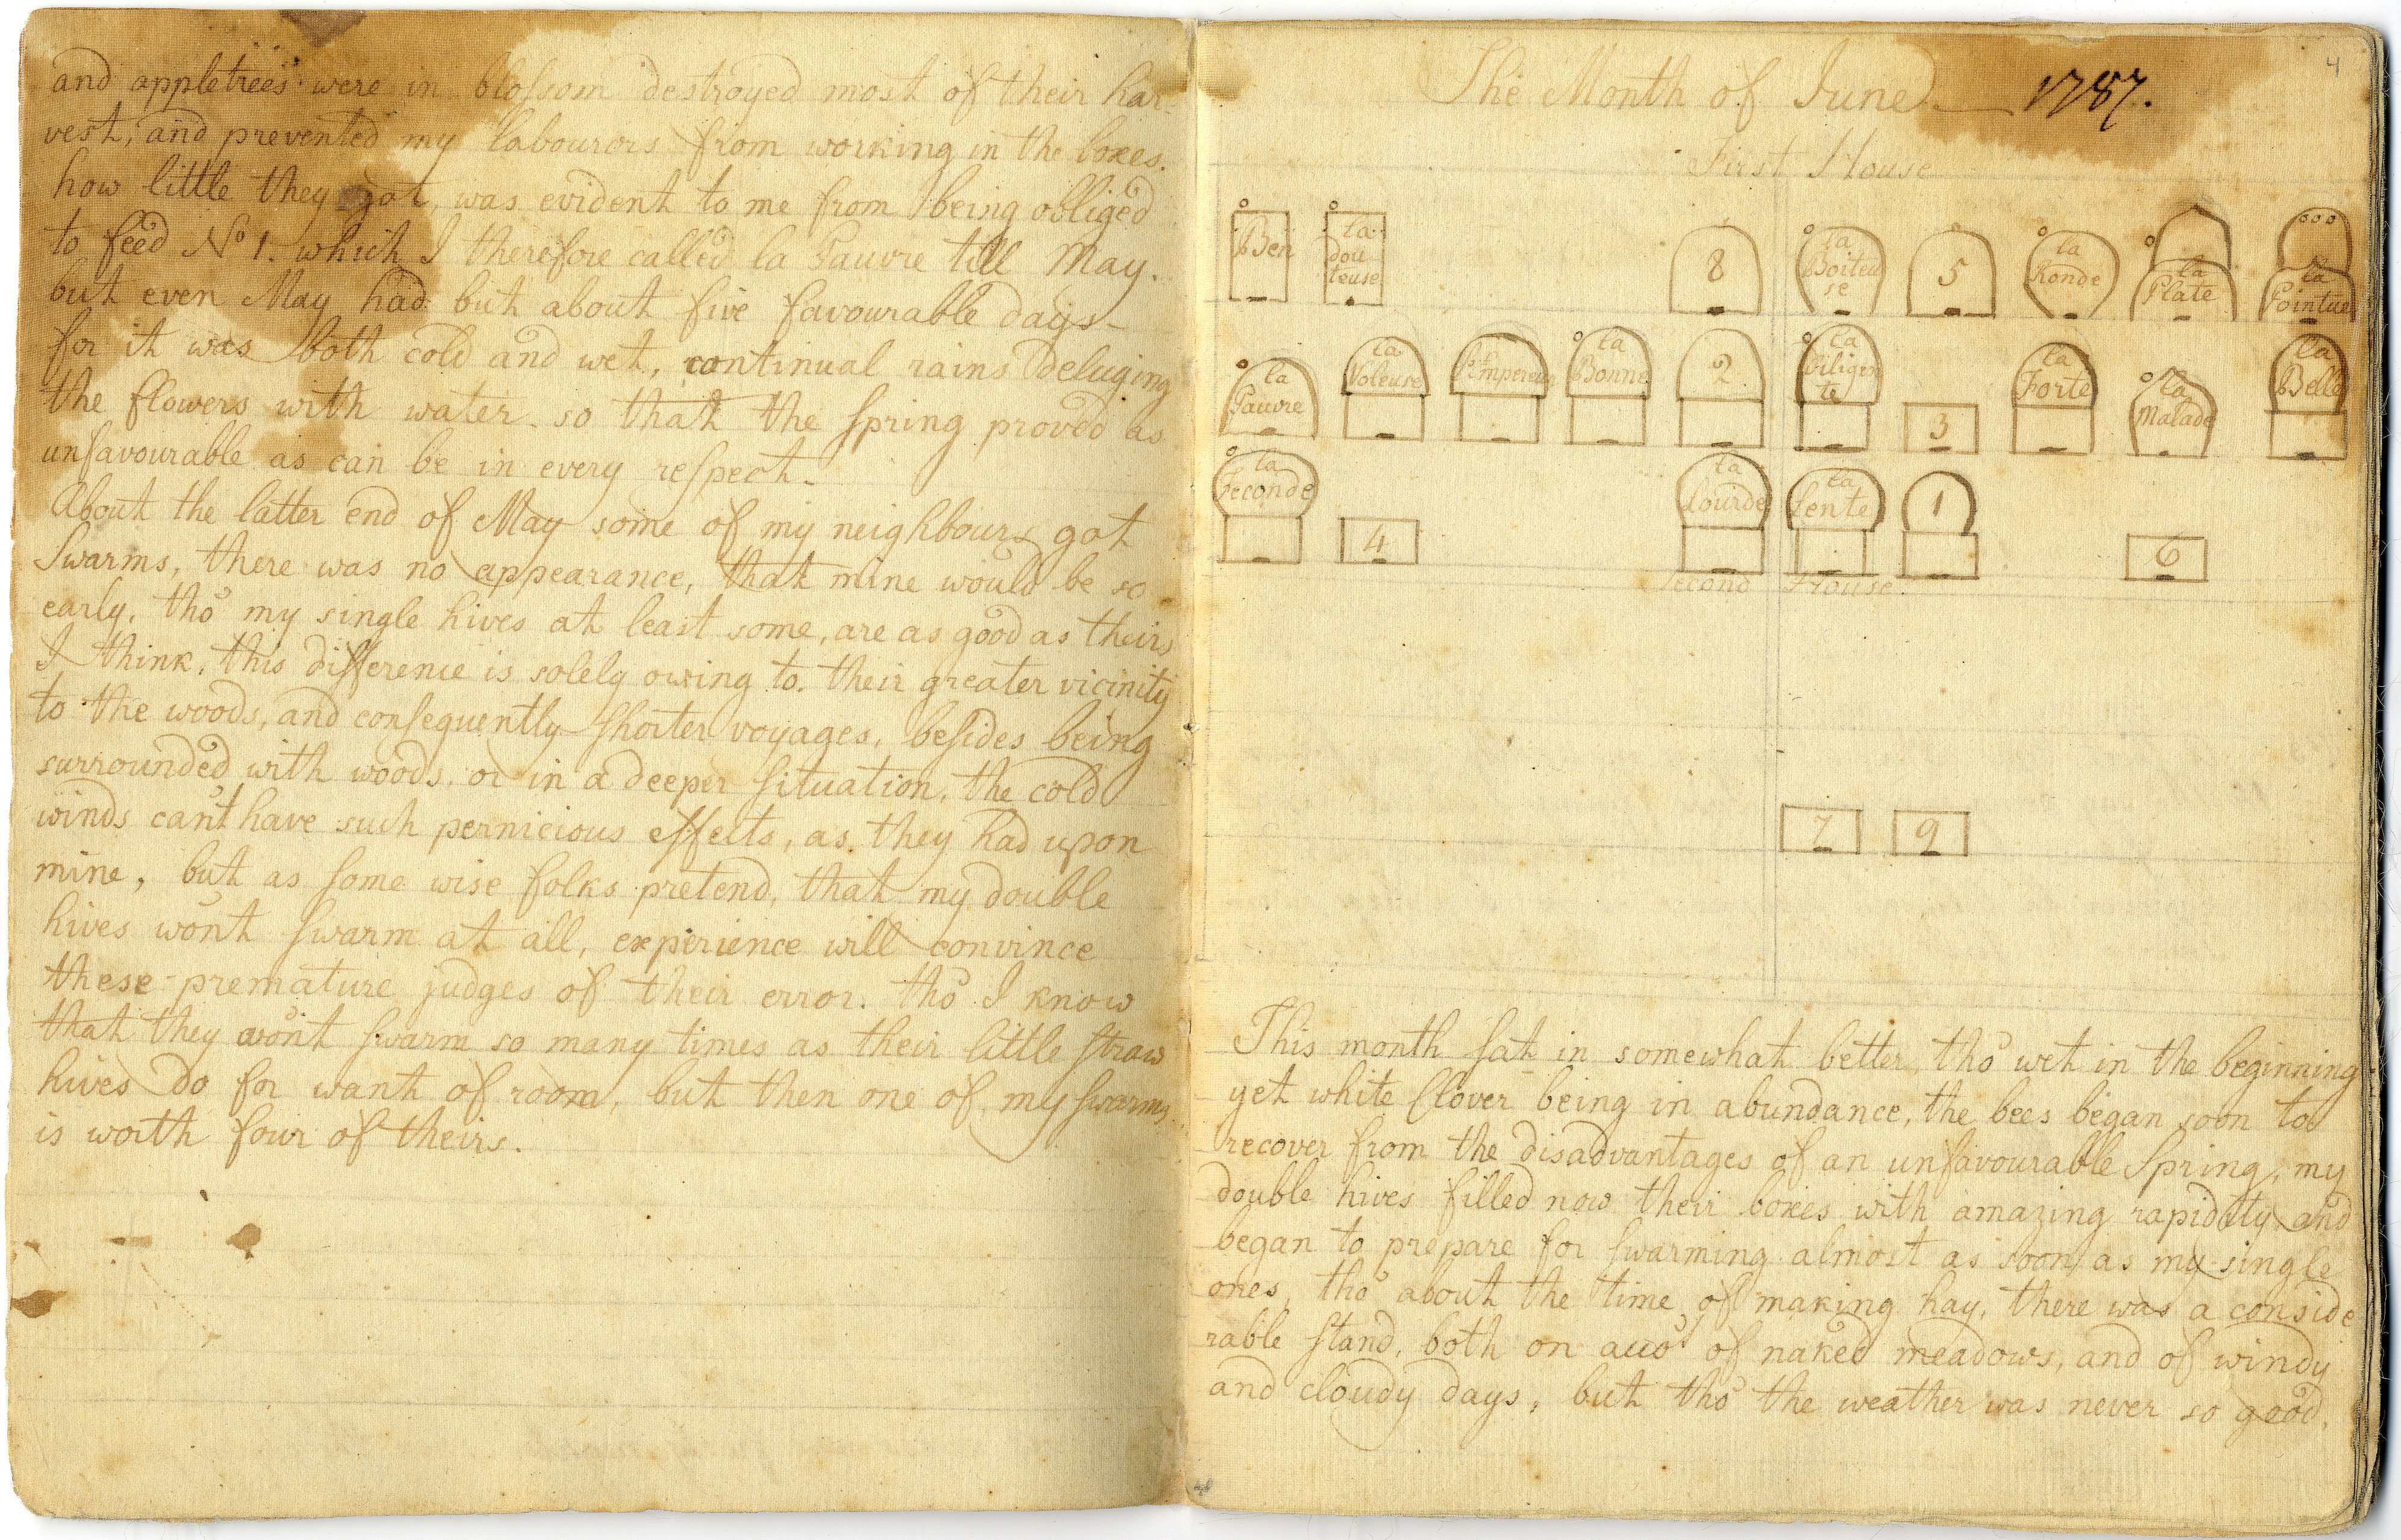 and appletrees were in blossom destroyed most of their har-
vest, and prevented my labourers from working in the boxes.
how little they got, was evident to me from being obliged
to feed No 1. which I therefore called la Pauvre till May.
but even May had but about five favourable days-
for it was both cold and wet, continual rains deluging
the flowers with water. so that the spring proved as
unfavourable as can be in every respect.
About the latter end of May some of my neighbours got
Swarms, there was no appearance, that mine would be so
early. tho' my single hives at least some, are as good as theirs
I think, this difference is solely owing to. their greater vicinity
to the woods, and consequently shorter voyages, besides being
surrounded with woods. or in a deeper situation, the cold
winds can't have such pernicious effects, as they had upon
mine, but as some wise folks pretend, that my double
hives won't swarm at all, experience will convince
these premature judges of their error. tho' I know
that they won't swarm so many times as their little straw
hives do for want of room, but then one of my swarms
is worth four of theirs.
4
The Month of June — 1787.
First House
Ben
la
dou
teuse
8
la
Boiteu
se
5
la
Ronde
la
Plate
la
Pointue
la
Pauvre
la
Voleuse
l'Empereur
la
Bonne
2
la
Diligen
te
3
la
Forte
la
Malade
la
Belle
la
Seconde
4
la
Lourde
la
Lente
1
6
Second House.
7
9
This month sat in somewhat better, tho' wet in the beginning
yet white Clover being in abundance, the bees began soon to
recover from the disadvantages of an unfavourable Spring, my
double hives filled now their boxes with amazing rapidity and
began to prepare for swarming almost as soon as my single
ones, tho' about the time of making hay, there was a conside
rable stand, both on acco't of naked meadows, and of windy
and cloudy days, but tho' the weather was never so good,